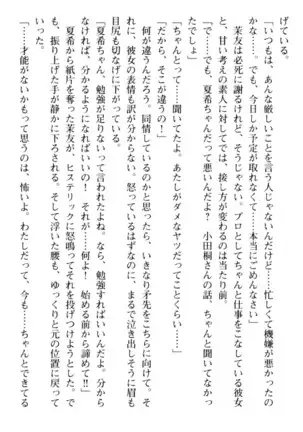 げている。
「いつもは、あんな厳しいことを言う人じゃないんだけど……忙しくて機嫌が悪かったのかな……。でも、今日しか予定が取れなくて……本当にごめんなさい」
茉友は必死に謝るけれど、そうじゃない。プロとしてちゃんと仕事をこなしている彼女と、甘い考えの素人に対しては、接し方が変わるのは当たり前。
「で……でも、夏希ちゃんだって悪いんだよ？　小田桐さんの話、ちゃんと聞いてなかったでしょ」
「ちゃんとって……聞いてたよ。あたしがダメなヤツだってことくらい……」
「だから、そこが違うの！」
何が違うんだろう。同情しているのかと思ったら、いきなり矛先をこちらに向けて。それに、彼女の表情も訳が分からない。怒っているはずなのに、まるで泣き出しそうに眉も目尻も切なげに下がっている。
「夏希ちゃん、勉強が足りないって言われたよね。なら、勉強すればいいんだよ。分からなければ、分かるようになればいいの！　それが……何よ！　始める前から諦めて!!」
夏希から紙片を奪った茉友が、ヒステリックに怒鳴ってそれを投げつけようとした。でも、振り上げた手が静かに下ろされる。そして浮いた腰も、ゆっくりと元の位置に戻っていった。
「……才能がないかもって思うのは、怖いよ。わたしだって、今も……ちゃんとできてる